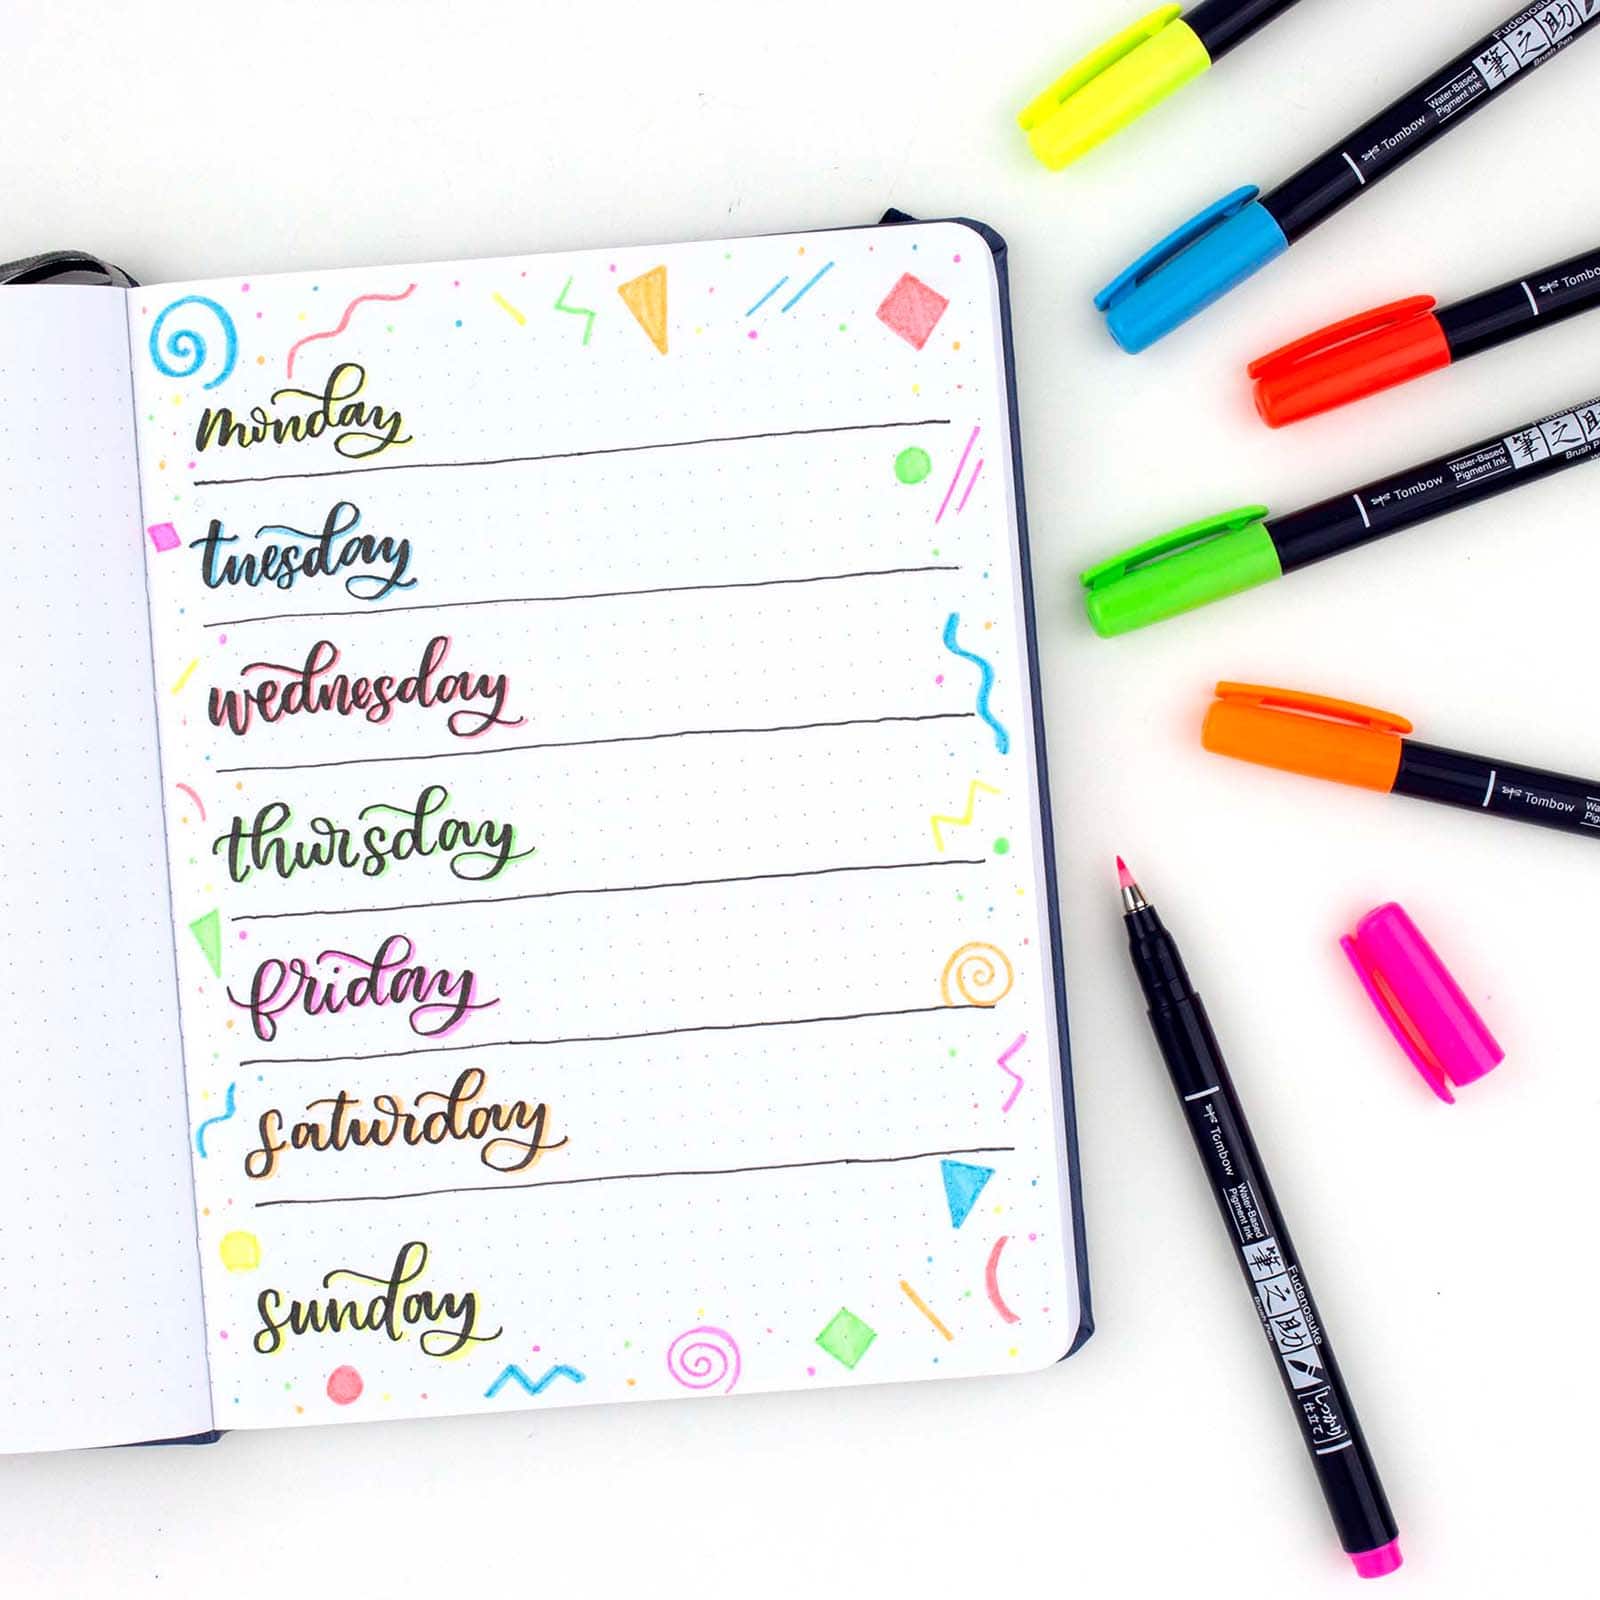 monday
tuesday
wednesday
thursday
friday
saturday
sunday
Tombow
Water-Based
Pigment Ink
筆之助
Fudenosuke
Brush Pen
Tombow
Tombow
Water-Based
Pigment Ink
筆之助
Brush Pen
Tombow
Tombow
Water-Based
Pigment Ink
筆之助
Fudenosuke
Brush Pen
しっかり
仕立て